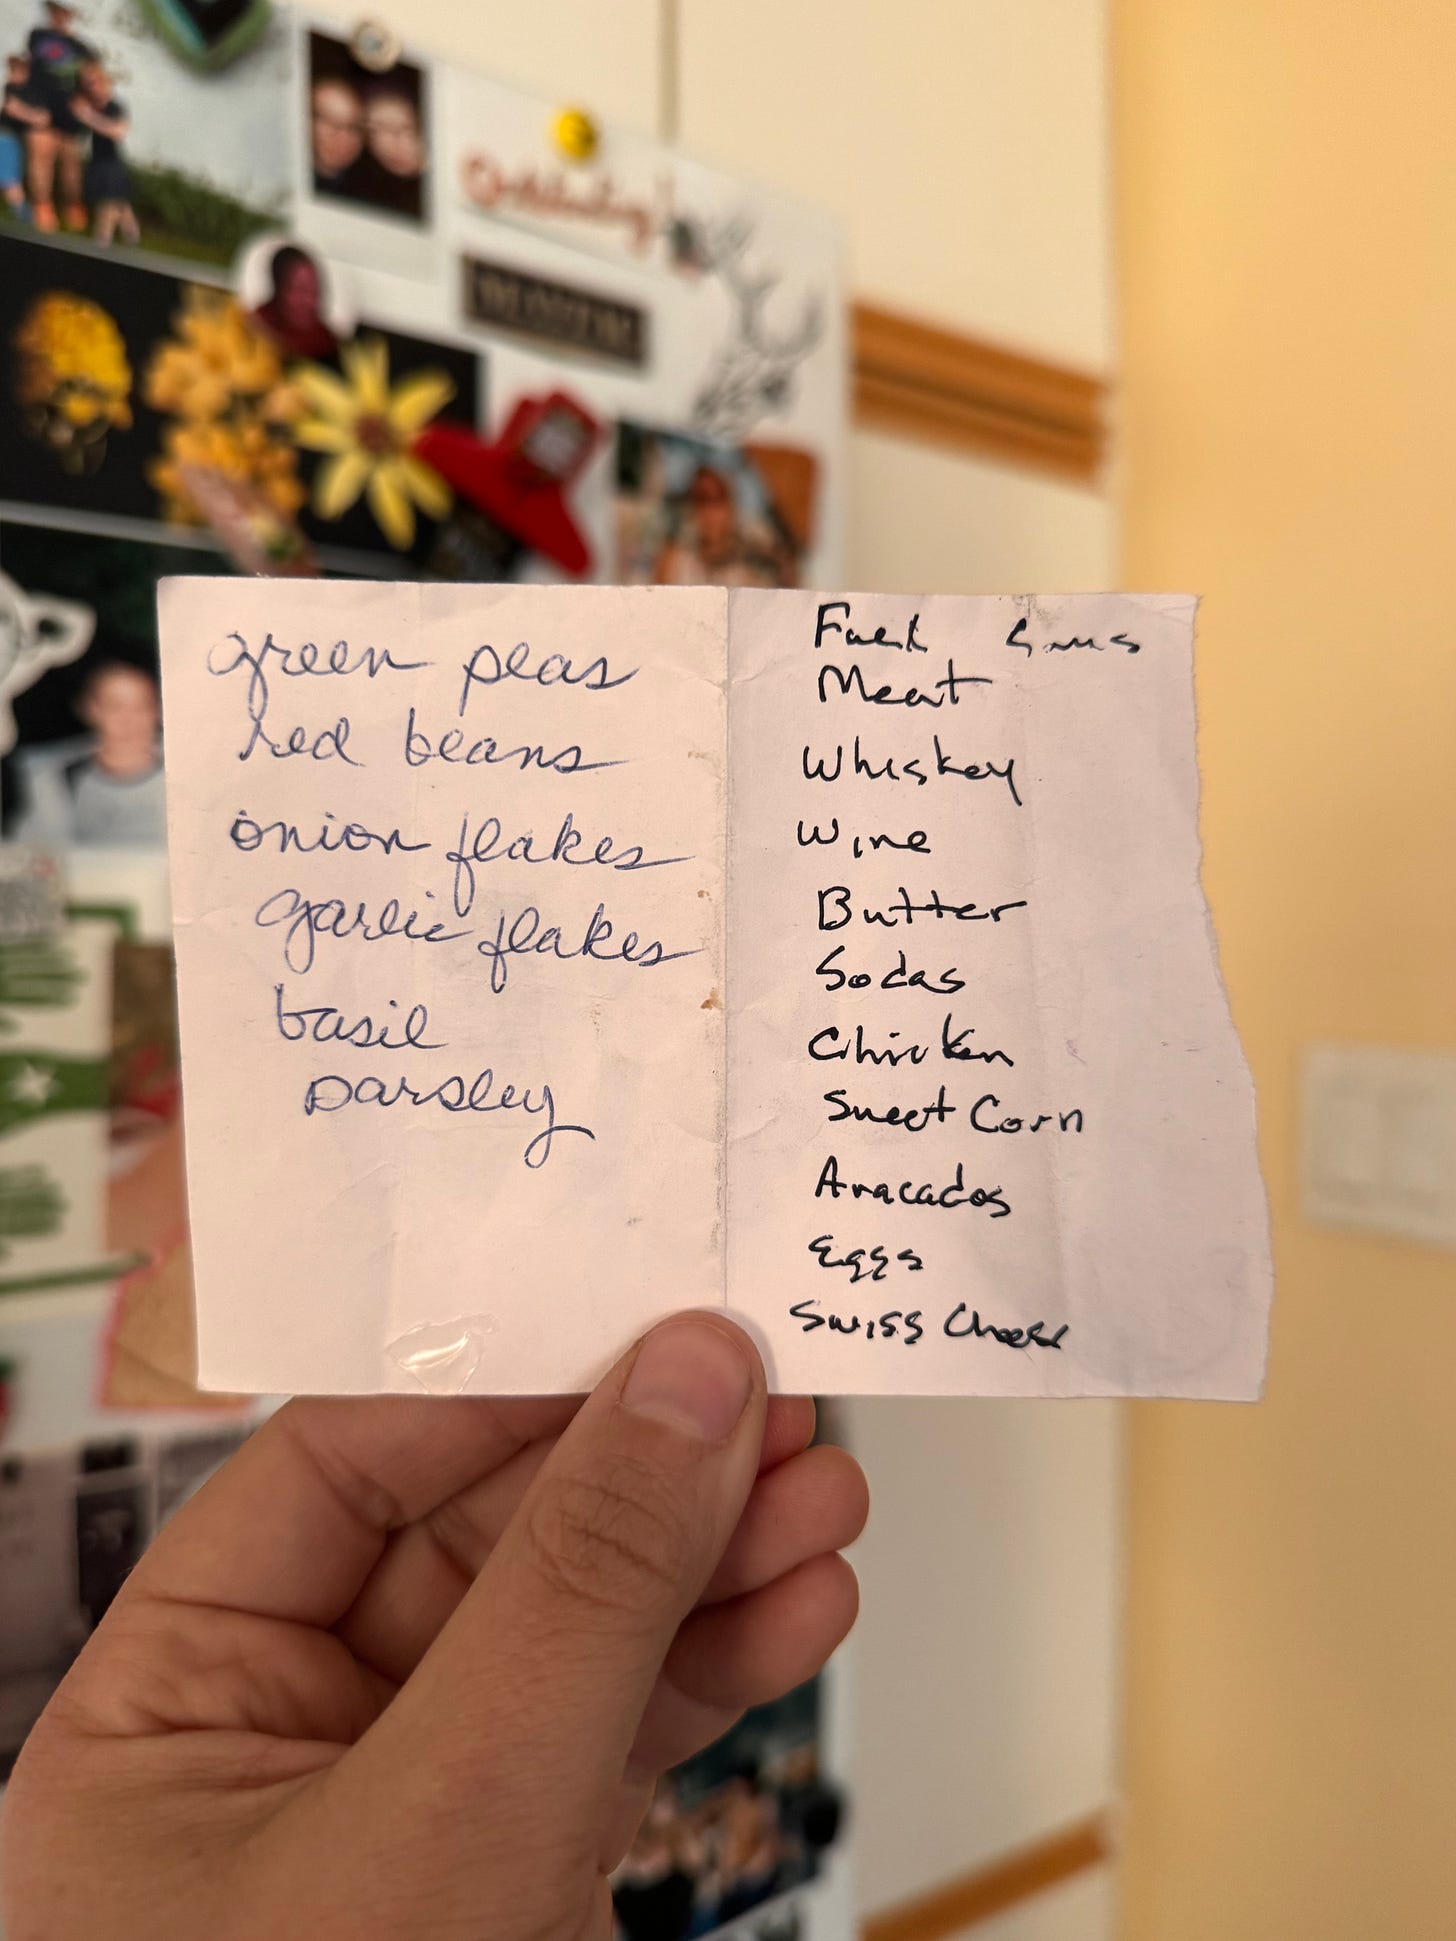 green peas
red beans
onion flakes
garlic flakes
basil
parsley
Meat
Whiskey
Wine
Butter
Sodas
Chicken
Sweet Corn
Avacados
Eggs
Swiss Cheese